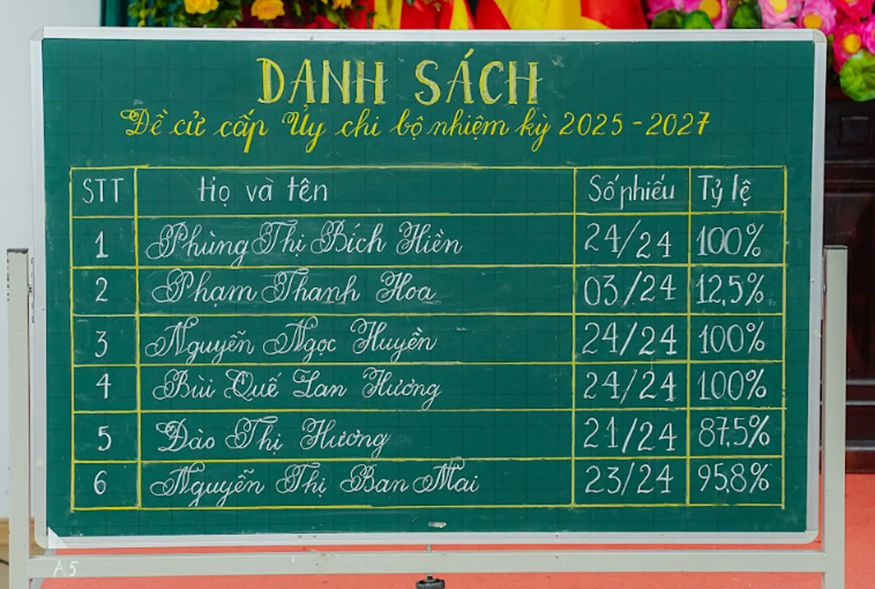 DANH SÁCH
Đề cử cấp Ủy chi bộ nhiệm kỳ 2025-2027
STT Họ và tên Số phiếu Tỷ lệ
1 Phùng Thị Bích Hiền 24/24 100%
2 Phạm Thanh Hoa 03/24 12,5%
3 Nguyễn Ngọc Huyền 24/24 100%
4 Bùi Quế Lan Hương 24/24 100%
5 Đào Thị Hương 21/24 87,5%
6 Nguyễn Thị Ban Mai 23/24 95,8%
A5